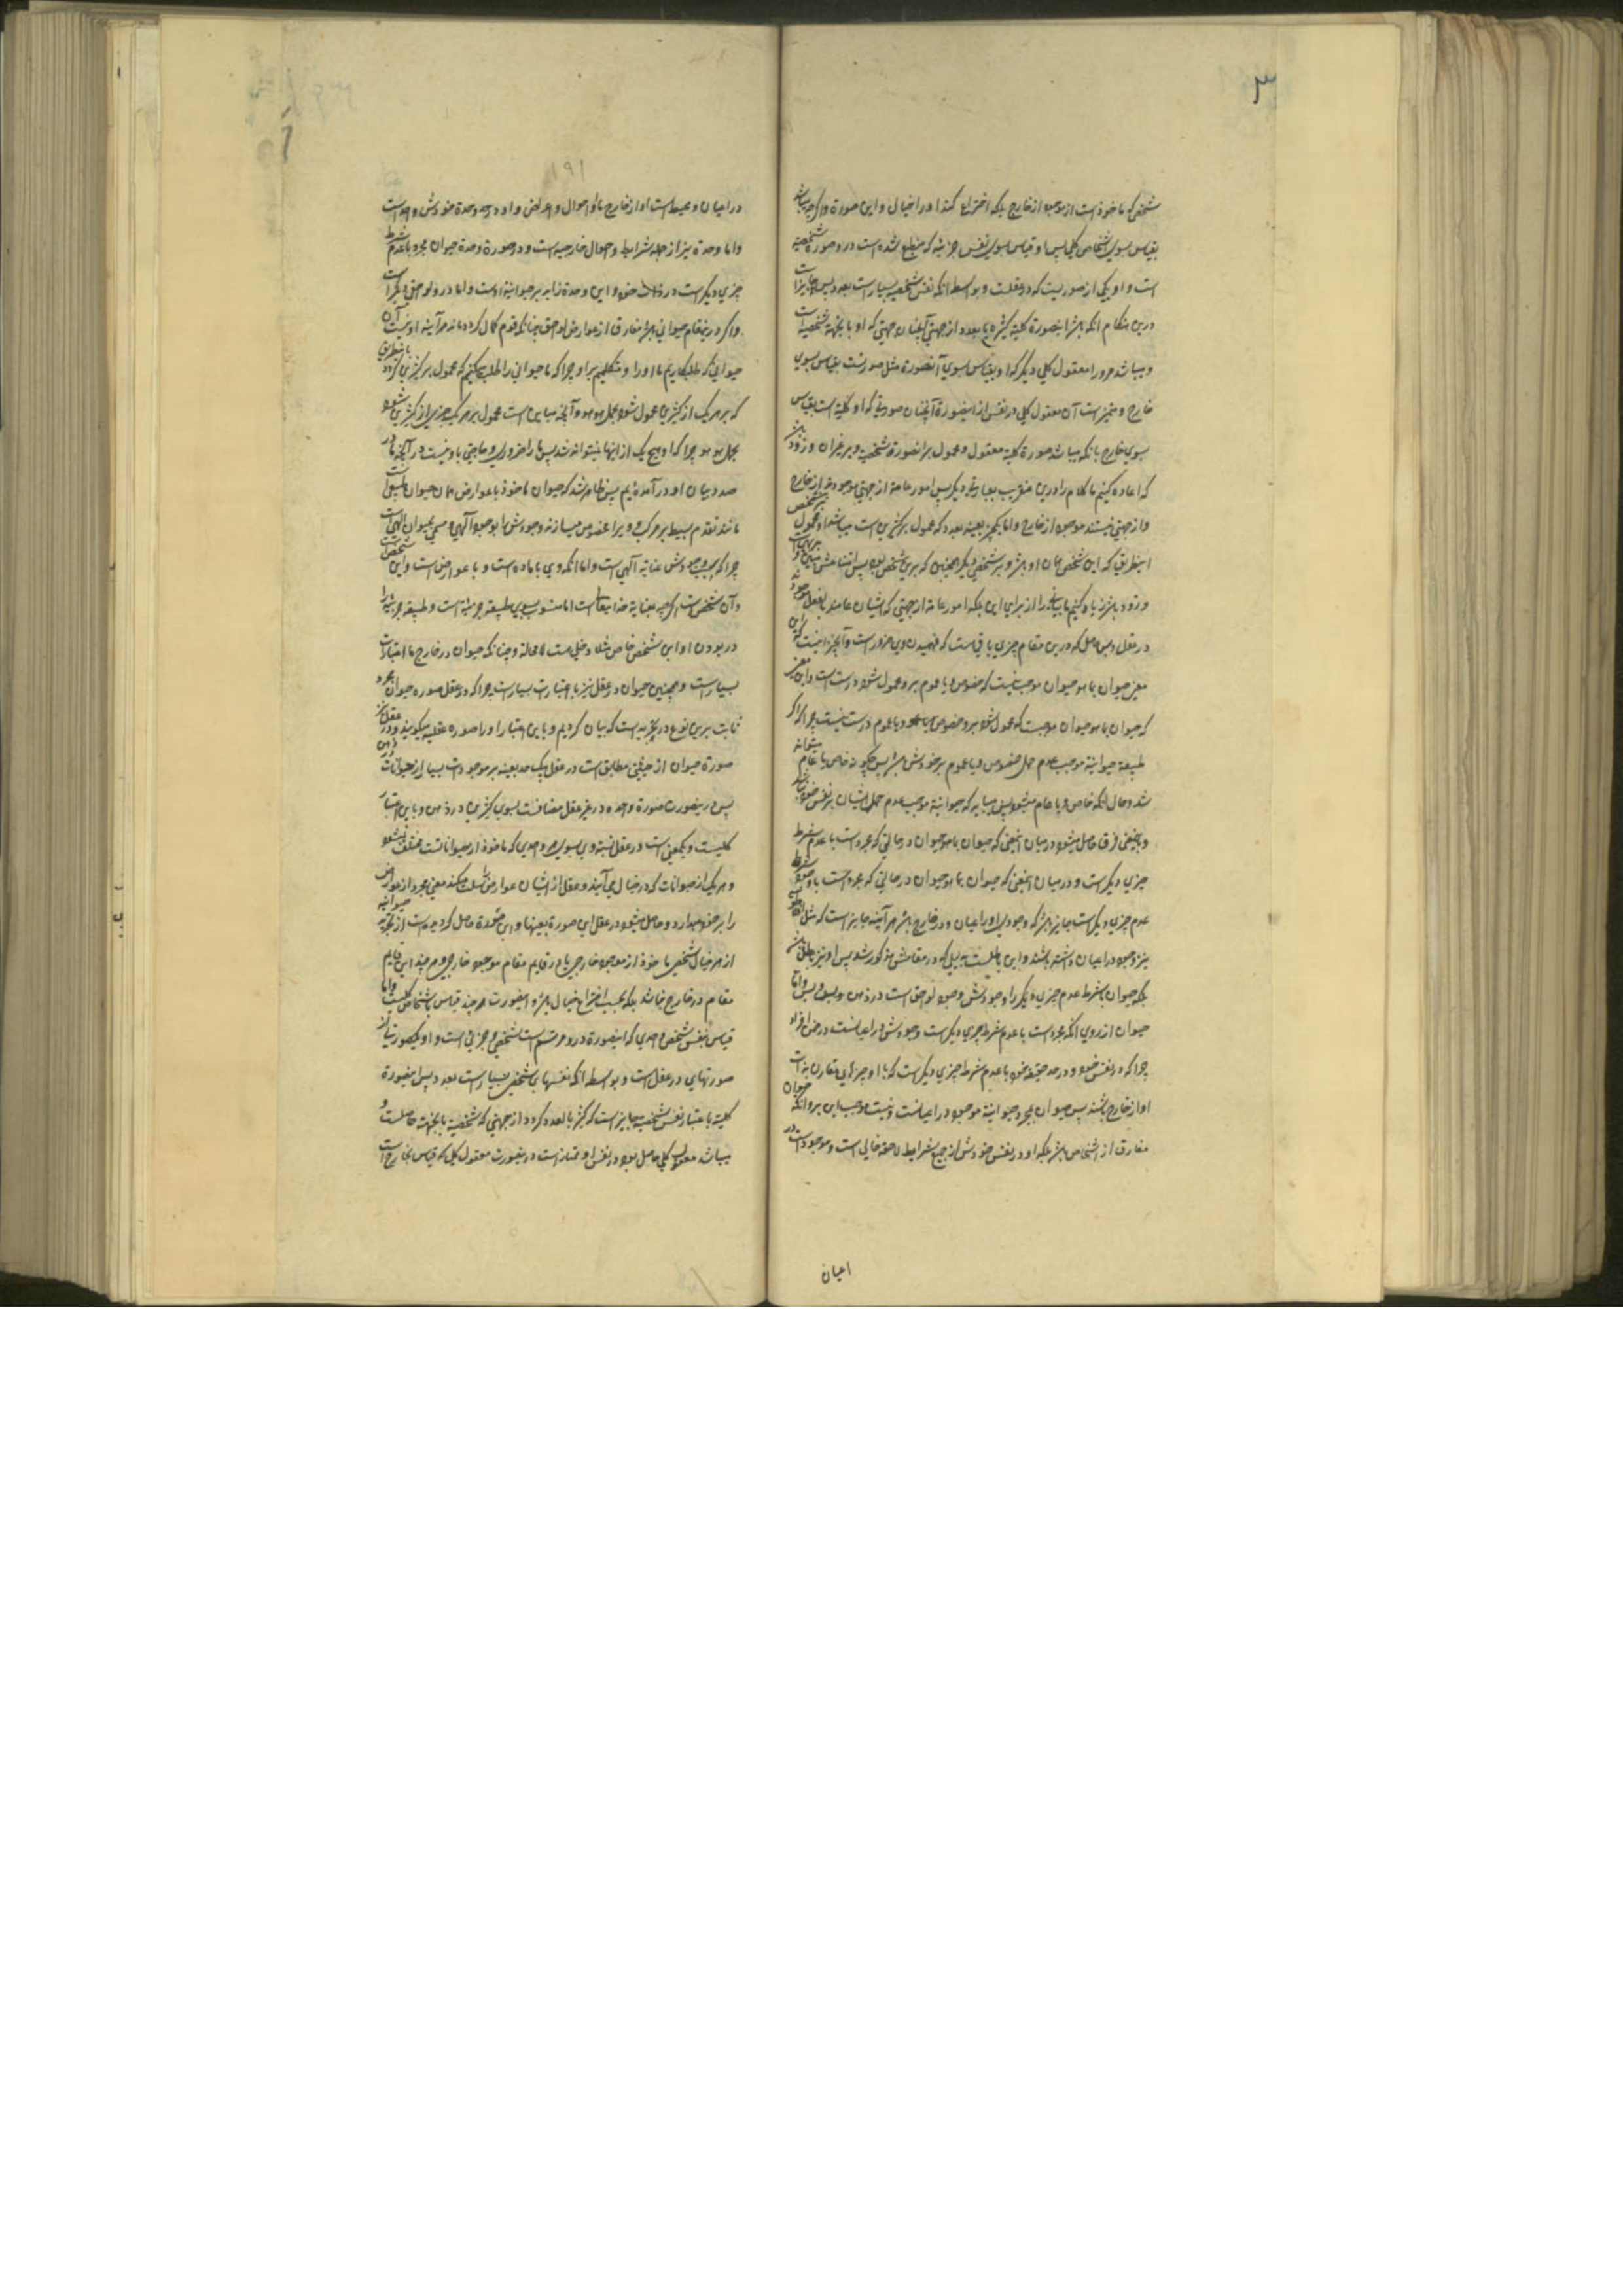 ۳
شخص که ماخوذ است از موجود از خارج بلکه اختراع کند او را خیال و این صورة و اگرچه باشد
بقیاس بسوی اشخاص کلی پس او بقیاس بسوی نفس جزئیه که منطبع شده است در و صورة شخصیة
است و او یکی از صوریست که در عقلست و بواسطه آنکه نفس شخصیه بسیار است بعدد پس جایز است
درین هنگام آنکه باشد اینصورة کلیة کثیره بعدد از جهتی آنچنان جهتی که او بانجهة شخصیة است
و میباشد مر او را معقول کلی دیگر که او بقیاس بسوی آنصورة مثل صورتست بقیاس بسوی
خارج و متمیز است آن معقول کلی در نفس از اینصورة آنچنان صورتیکه او کلیة است بقیاس
بسوی خارج بآنکه میباشد صورة کلیة معقول و محمول بر آنصورة شخصیة و بر غیر آن و زود باشد
که اعاده کنیم ما کلام را درین عنقریب بعبارتی دیگر پس امور عامة از جهتی موجودند از خارج
و از جهتی نیستند موجود از خارج و اما یکچیز بعینه بعدد که محمول بر کثیرین است میباشد او محمول بر شخص
اینطریق که این شخص همان او باشد و بر شخصی دیگر همچنین که برین شخص بود پس امتناعش مبین است و
و زود باشد زیاد کنیم ما بیانرا از برای این بلکه امور عامة از جهتی که ایشان عامند بالفعل موجودند
در عقل و بس حاصل که درین مقام چیزی باقیست که فهمیدن وی ضرور است و آنچیز اینست که این
معنی حیوان بما هو حیوان موجب نیست که خصوص و یا عموم برو محمول شود درست است و این معنی
که حیوان بما هو حیوان موجبست که محمول نشود برو خصوص و یا عموم درست نیست چرا که اگر
طبیعة حیوانیة موجب عدم حمل خصوص و یا عموم بر خودش باشد پس چگونه خاص یا عام میتوانند
شد و حال آنکه خاص و یا عام میشود پس میباید که حیوانیة موجب عدم حمل ایشان بر نفس خود نباشد
و بتحقیق فرق حاصل میشود در میان اینمعنی که حیوان بما هو حیوان در حالتی که مجرد است با عدم شرط
چیزی دیگر است و در میان اینمعنی که حیوان بما هو حیوان در حالتی که مجرد است با وجود شرط
عدم چیزی دیگر است جایز باشد که وجودی او را اعیان و در خارج باشد هر آینه جایز است که
نیز وجود در اعیان داشته باشند و این باطلست بدلیلی که در مقامش مذکور شد پس او نیز باطل باشد
بلکه حیوان بشرط عدم چیزی دیگر را وجودش وجود لوحق است در ذهن و بس و اما
حیوان از روی آنکه مجرد است با عدم شرط چیزی دیگر است وجودش در اعیانست در ضمن افراد
چرا که در نفس خود و در حد حقیقة خود با عدم شرط چیزی دیگر است که با او چیزهای مقارن بذات
او از خارج باشند پس حیوان مجرد حیوانیة موجود در اعیانست و نیست موجب این بر و آنکه حیوان
مفارق از اشخاص باشد بلکه او در نفس خودش از جمیع شرایط لاحقه خالی است و موجود است در
اعیان
۱۹۱
در اعیان و محیط است او از خارج با و احوال و اعراض و او در حد وحدة خودش واحد است
و اما وحدة نیز از جمله شرایط و احوال خارجیه است و در صورة وحدة حیوان مجرد با عدم شرط
چیزی دیگر است در ذات خود و این وحدة زاید بر حیوانیة اوست و اما در و لوحق دیگر است
و اگر درینمقام حیوانی باشد مفارق از عوارض لوحق چنانکه قوم گمان کرده‌اند هر آینه او نیست آن
حیوانی که طلبکاریم ما او را و متکلمیم بر او چرا که ما حیوانی را طلب میکنیم که محمول بر کثیرین گردد باینطریق
که بر هر یک از کثیرین محمول شود بحمل هو هو و آنچه مباین است محمول بر هر یک چیز از کثیرین نشود
بحمل هو هو چرا که او هیچ یک از اینها نمیتوانند شد پس ما را ضروری و حاجتی باو نیست در آنچه ما در
صدد بیان او در آمده‌ایم پس ظاهر شد که حیوان ماخوذ با عوارض همان حیوان طبیعی است
مانند تقدم بسیط بر مرکب و ویرا مخصوص میسازند وجودش را بوجود الهی و مسمی بحیوان الهی است
چرا که سبب وجودش عنایة الهی است و اما آنکه وی با ماده است و با عوارض است و این شخص است
و آن شخص است اگرچه بعنایة خدایتعالی است اما منسوب بسوی طبیعة جزئیة است و طبیعة جزئیه را
در بودن او این شخص خاص مثلا دخلی هست لامحاله و چنانکه حیوان در خارج با اعتبارات
بسیار است و همچنین حیوان در عقل نیز با اعتبارات بسیار است چرا که در عقل صورة حیوان مجرد
ثابت برین نوع در تجرید است که بیان کردیم و باین اعتبار او را صورة عقلیه میگویند و در عقل نیز
صورة حیوان از حیثی مطابق است در عقل یک حد بعینه بر موجودات بسیار از حیوانات
پس درینصورت صورة واحده در غیر عقل مضافست بسوی کثیرین در ذهن و باین اعتبار
کلیست و یک معنی است در عقل نسبة وی بسوی هر واحدی که ماخوذ از حیواناتست مختلف نمیشود
و هر یک از حیوانات که در خیال می‌آیند و عقل از ایشان عوارض را سلب میکند معنی مجرد از عوارض
را بر خود میدارد و حاصل میشود در عقل این صورة بعینها و این صورة حاصل گردیده است از تجرید حیوانیة
از هر خیال شخصی ماخوذ از موجود خارجی یا در قایم مقام موجود خارجی و هر چند این قایم
مقام در خارج نباشد بلکه بحسب اختراع خیال باشد و اینصورت هر چند قیاس باشخاص کلیست و اما
قیاس بنفس شخص واحدی که اینصورة در و مرتسم است شخصی و جزئی است و او یک صورتیست از
صورتهای در عقل است و بواسطه آنکه نفسهای شخصی بسیار است بعدد پس اینصورة
کلیة باعتبار نفس شخصیه جایز است که کثیر بالعدد گردد از جهتی که شخصیة بانجهة حاصلست و
میباشد معقولی کلی حاصل بود در نفس او ممتاز است درینصورت معقول کلی که قیاس بخارج است